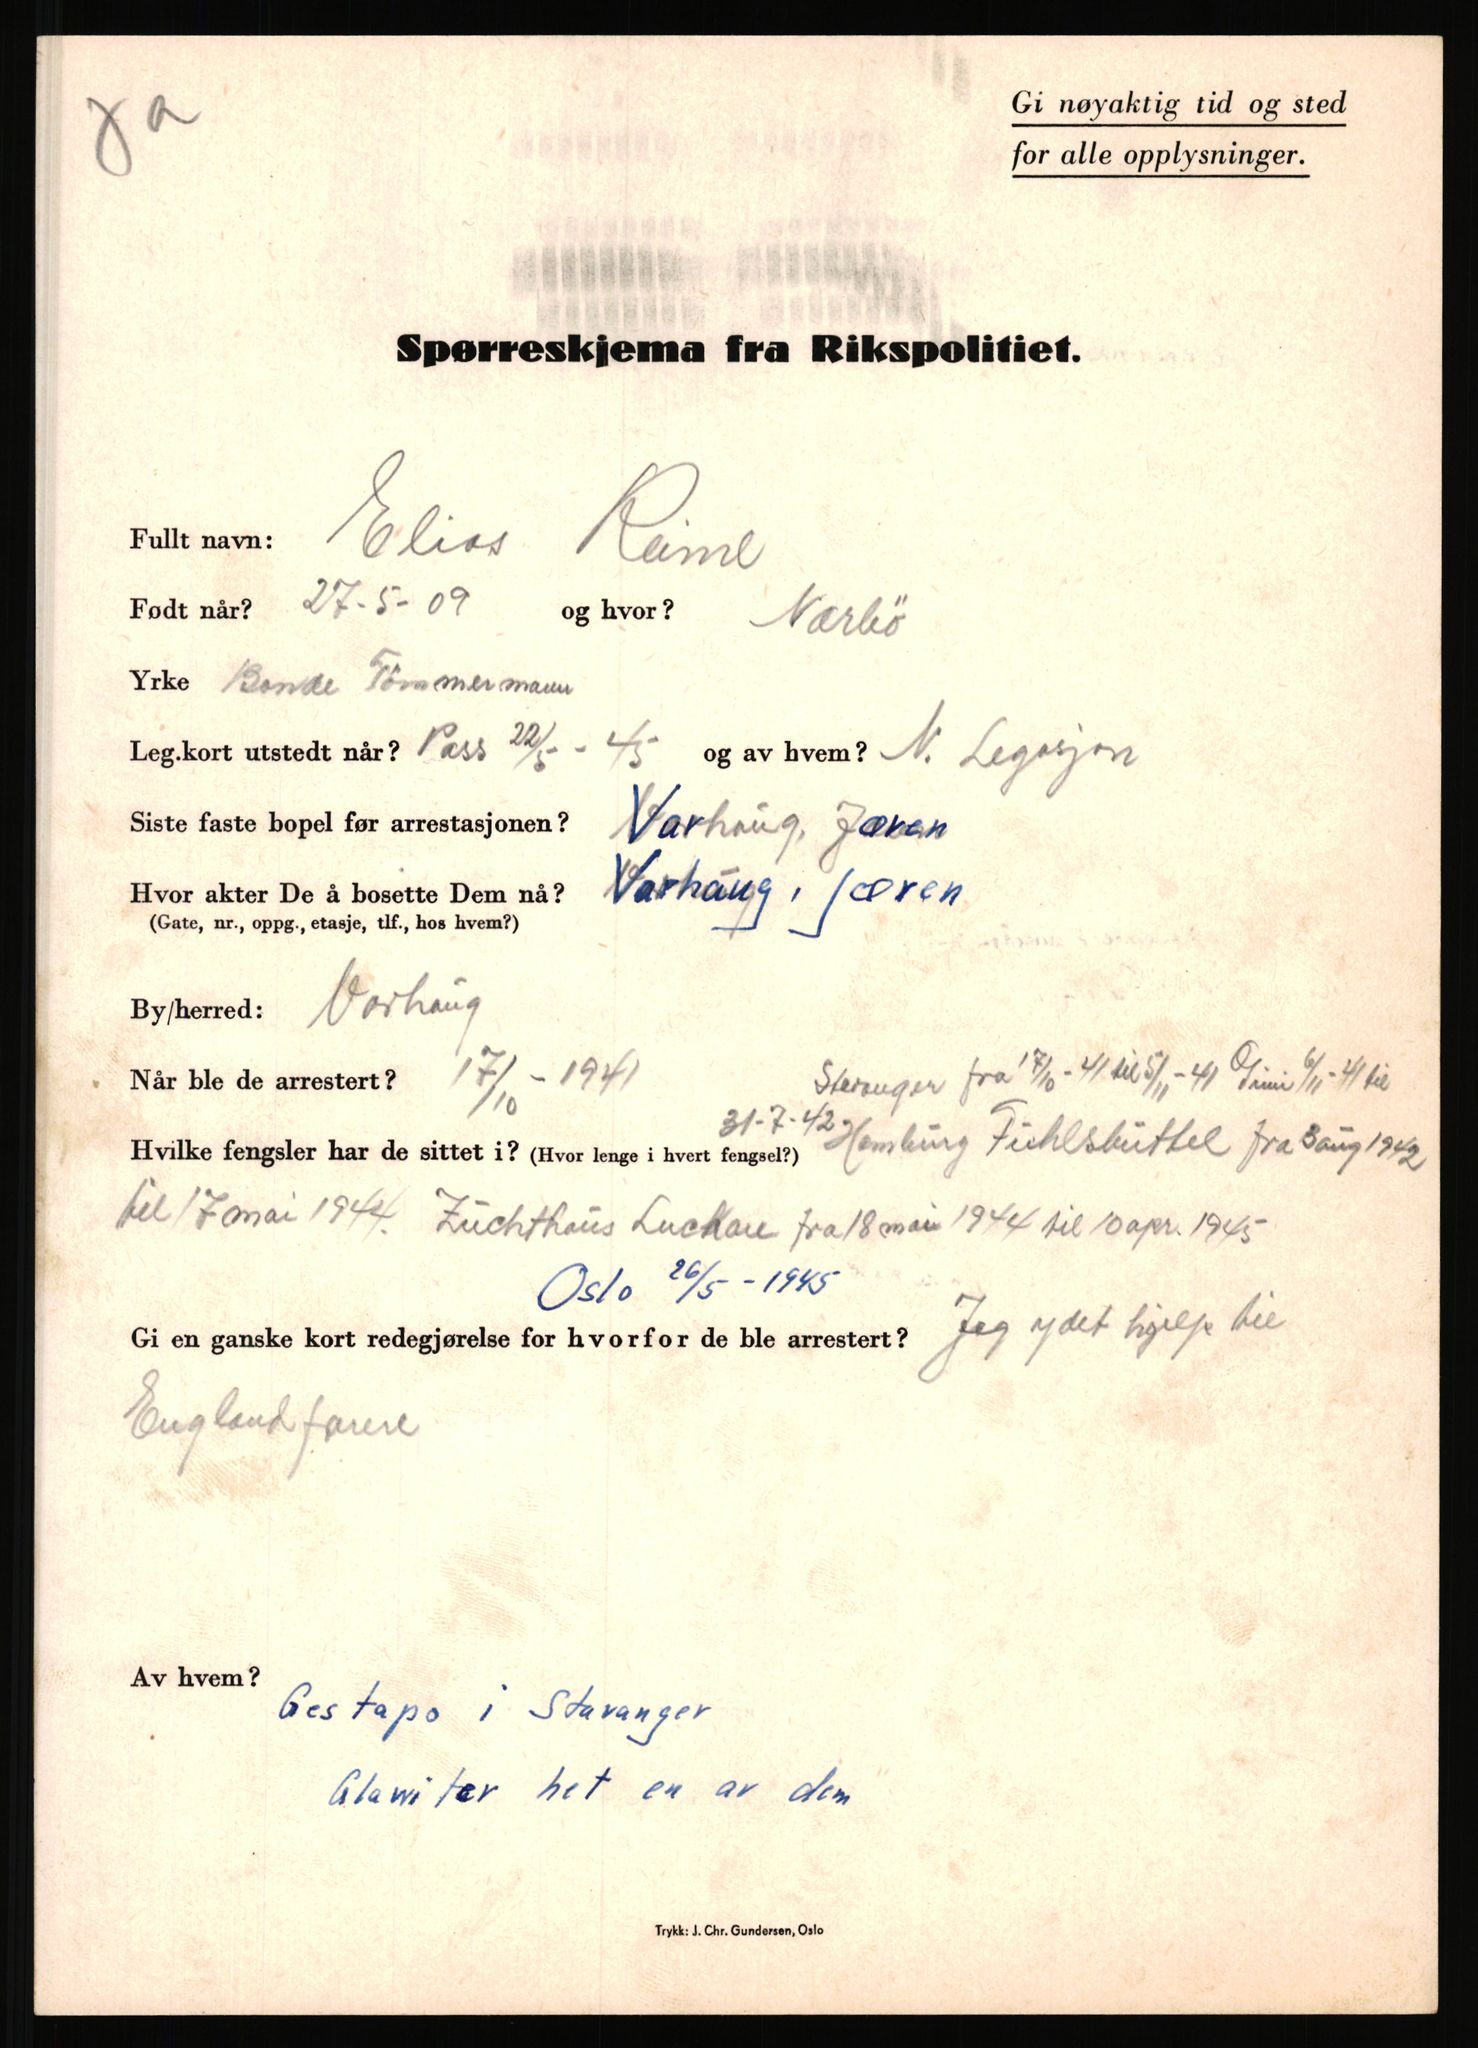 ja
Gi nøyaktig tid og sted
for alle opplysninger.
Spørreskjema fra Rikspolitiet.
Fullt navn: Elias Reime
Født når? 27-5-09 og hvor? Nærbö
Yrke Bonde Tömmermann
Leg.kort utstedt når? Pass 22/5-45 og av hvem? N. Legasjon
Siste faste bopel før arrestasjonen? Varhaug, Jæren
Hvor akter De å bosette Dem nå? Varhaug, Jæren
(Gate, nr., oppg., etasje, tlf., hos hvem?)
By/herred: Varhaug
Når ble de arrestert? 17/10-1941 Stavanger fra 17/10-41 til 5/11-41 6/11-41 til
31-7-42
Hvilke fengsler har de sittet i? (Hvor lenge i hvert fengsel?) Hamburg Fuhlsbüttel fra 3 aug 1942
til 17 mai 1944. Zuchthaus Luckau fra 18 mai 1944 til 10 apr. 1945
Oslo 26/5-1945
Gi en ganske kort redegjørelse for hvorfor de ble arrestert? Jeg ydet hjelp til
Englandfarere
Av hvem?
Gestapo i Stavanger
Glawiter het en av dem
Trykk: J. Chr. Gundersen, Oslo